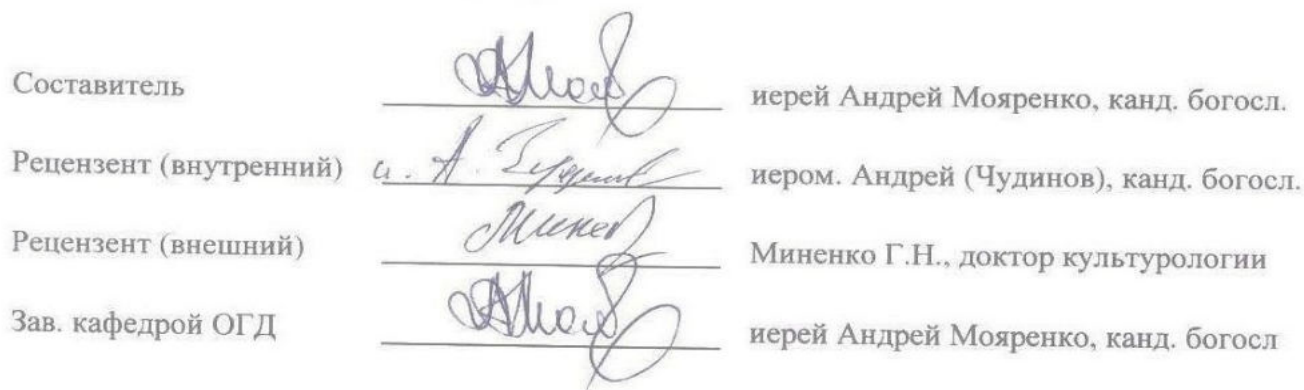 Составитель иерей Андрей Мояренко, канд. богосл.
Рецензент (внутренний) иером. Андрей (Чудинов), канд. богосл.
Рецензент (внешний) Миненко Г.Н., доктор культурологии
Зав. кафедрой ОГД иерей Андрей Мояренко, канд. богосл